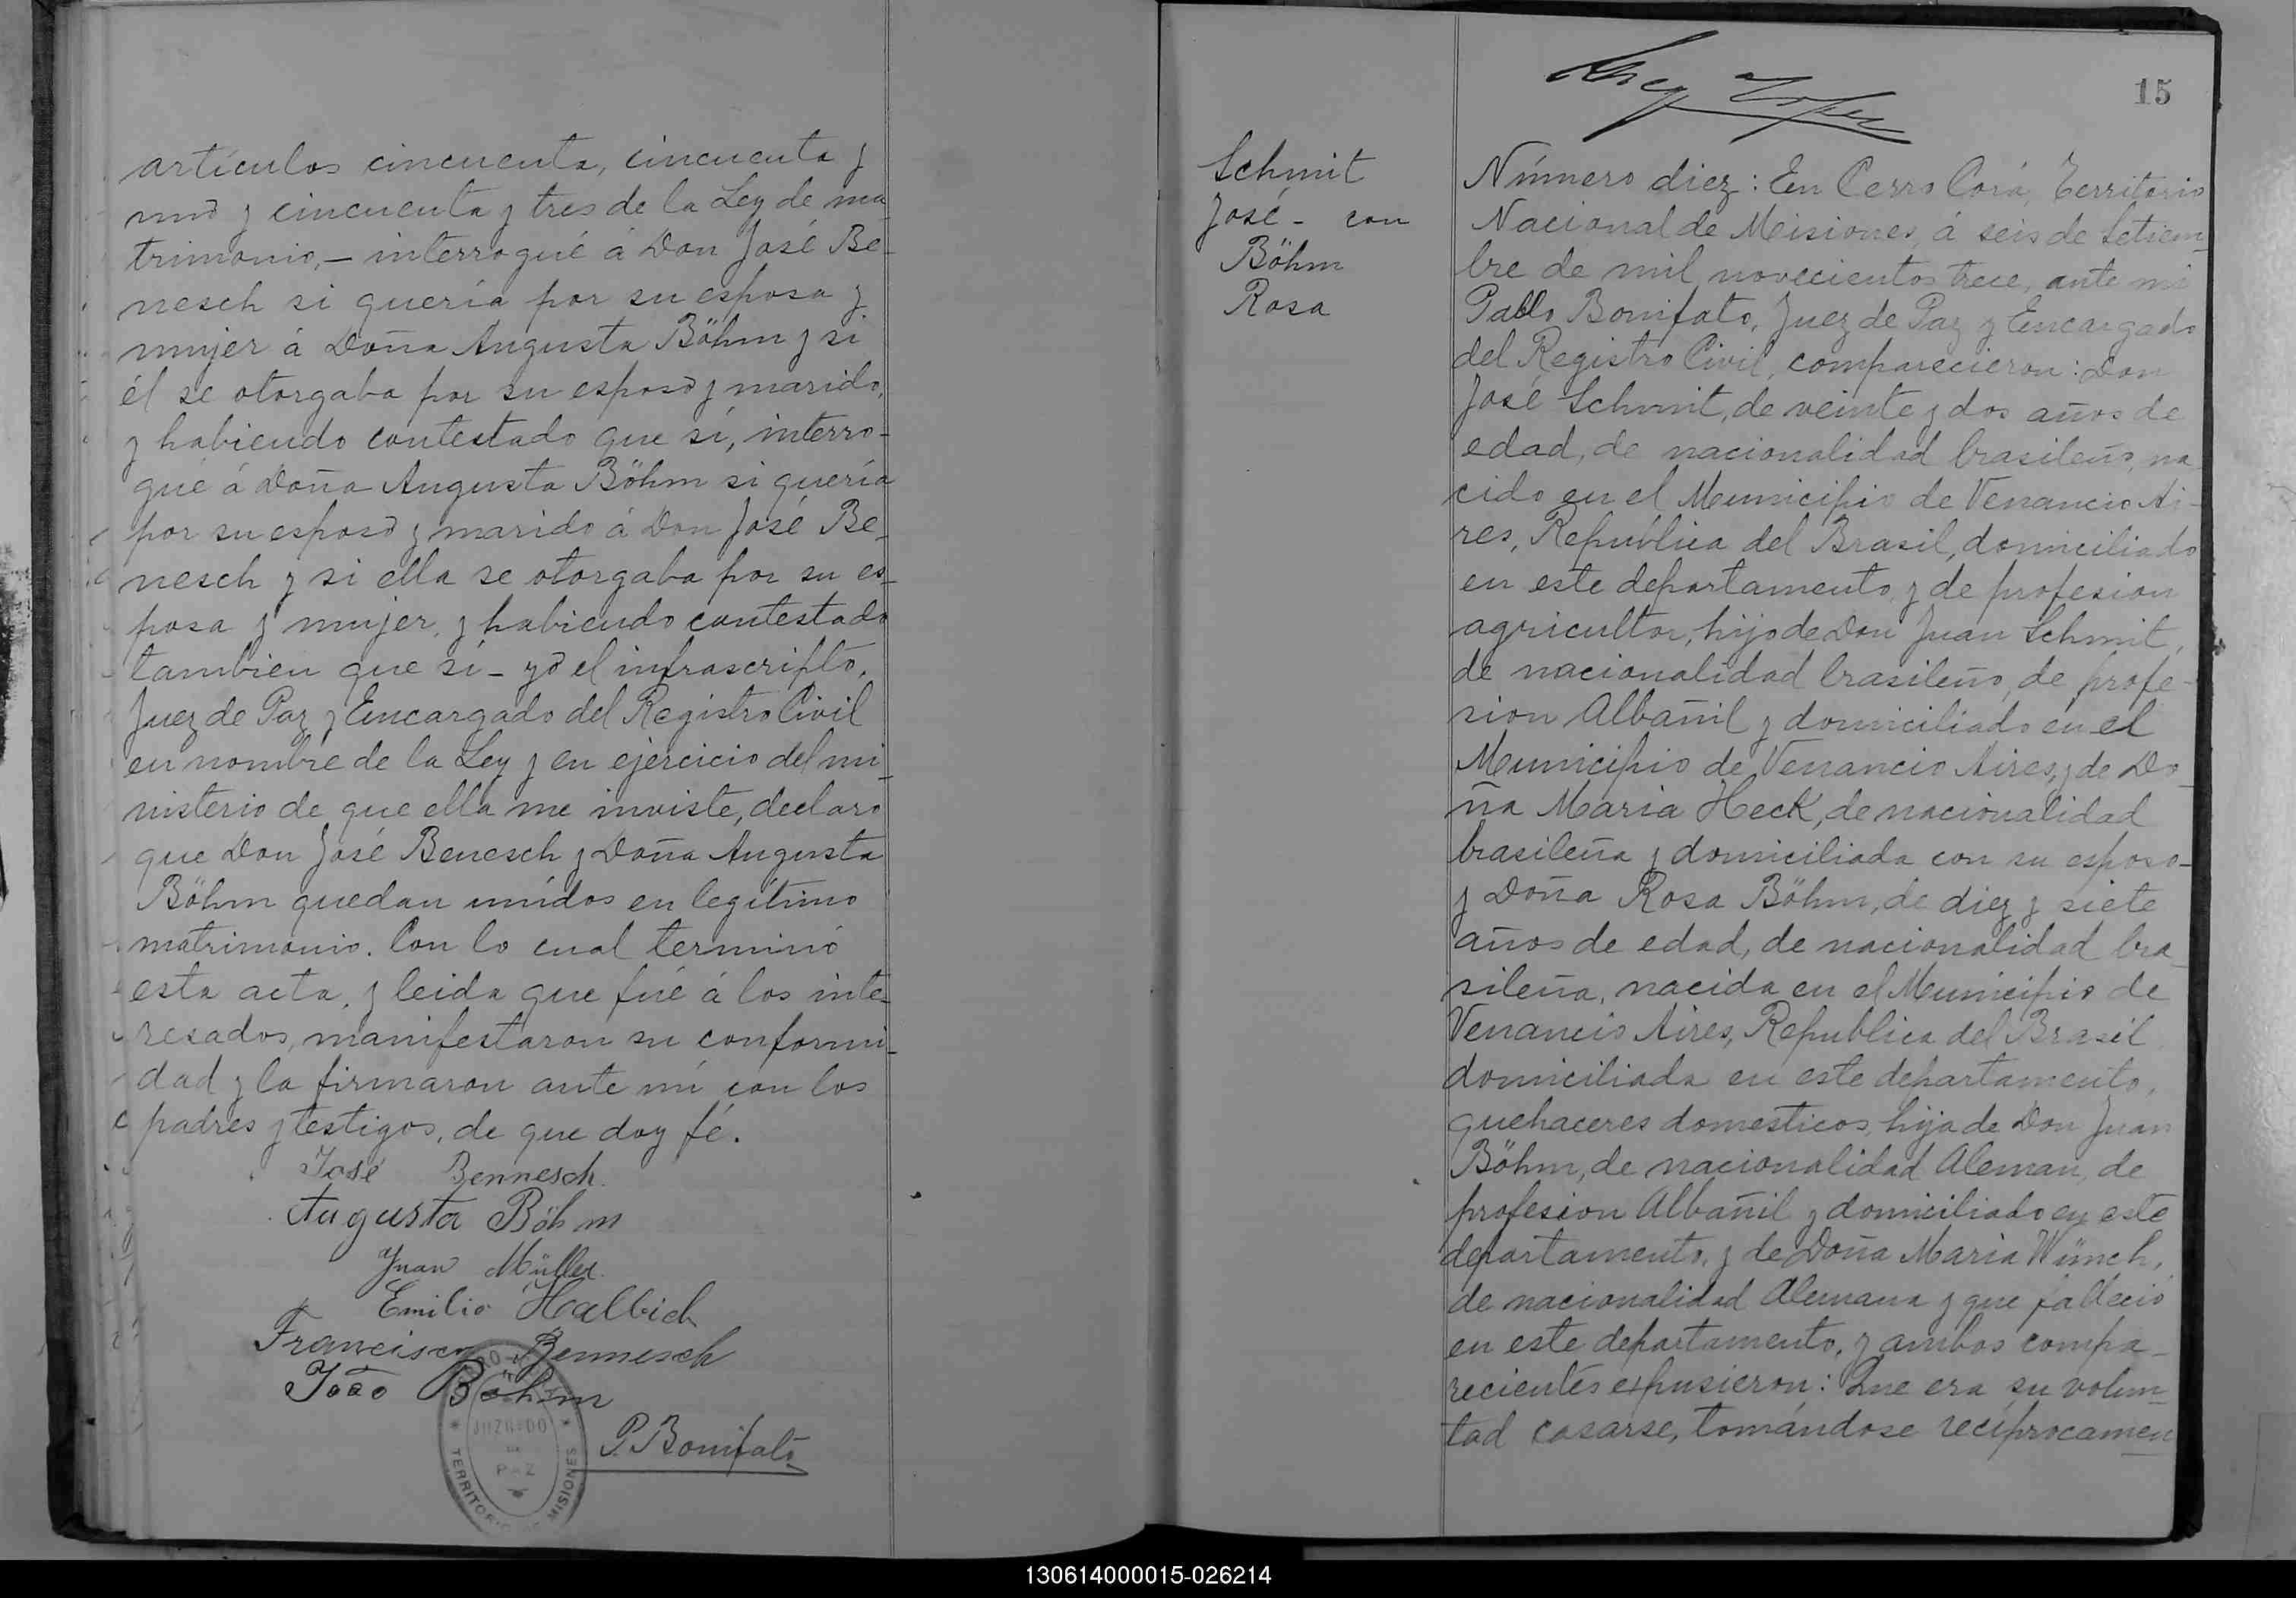 artículos cincuenta, cincuenta y
uno y cincuenta y tres de la Ley de ma-
trimonio,— interrogué á Don José Be-
nesch si quería por su esposa y
mujer á Doña Augusta Böhm y si
él se otorgaba por su esposo y marido,
y habiendo contestado que sí, interro-
gué á Doña Augusta Böhm si quería
por su esposo y marido á Don José Be-
nesch y si ella se otorgaba por su es-
posa y mujer, y habiendo contestado
tambien que sí - yo el infrascripto,
Juez de Paz y Encargado del Registro Civil
en nombre de la Ley y en ejercicio del mi-
nisterio de que ella me inviste, declaro
que Don José Benesch y Doña Augusta
Böhm quedan unídos en legítimo
matrimonio. Con lo cual terminó
esta acta, y leida que fué á los inte-
resados, manifestaron su conformi-
dad y la firmaron ante mí con los
padres y testigos, de que doy fé.
José Bennesch.
Augusta Böhm
Juan Müller.
Emilio Halbich
Francisco Bennesch
João Böhm
P. Bonifato
JUZGADO
DE
PAZ
TERRITORIO DE MISIONES
15
Schmit
José - con
Böhm
Rosa
Número diez: En Cerro Corá, Territorio
Nacional de Misiones, á seis de Setiem-
bre de mil novecientos trece, ante mi
Pablo Bonifato, Juez de Paz y Encargado
del Registro Civil, comparecieron: Don
José Schmit, de veinte y dos años de
edad, de nacionalidad brasileño, na
cido en el Municipio de Venancio Ai-
res, Republica del Brasil, domiciliado
en este departamento y de profesion
agricultor, hijo de Don Juan Schmit,
de nacionalidad brasileño, de profe-
sion Albañil y domiciliado en el
Municipio de Venancio Aires, y de Do-
ña Maria Heck, de nacionalidad
brasileña y domiciliada con su esposo-
y Doña Rosa Böhm, de diez y siete
años de edad, de nacionalidad bra-
sileña, nacida en el Municipio de
Venancio Aires, Republica del Brasil
domiciliada en este departamento,
quehaceres domesticos, hija de Don Juan
Böhm, de nacionalidad Aleman, de
profesion Albañil y domiciliado en este
departamento, y de Doña Maria Wünch,
de nacionalidad Alemana y que falleció
en este departamento, y ambos compa-
recientes expusieron: Que era su volun-
tad casarse, tomándose recíprocamen
130614000015-026214